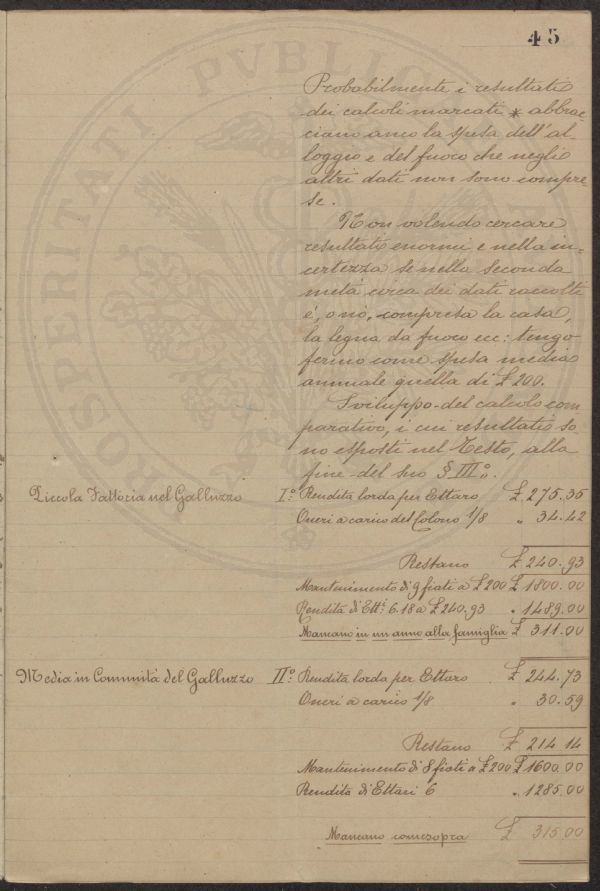 45
Probabilmente i resultati
dei calcoli marcati * abbrac
ciano anco la spesa dell'al
loggio e del fuoco che negli
altri dati non sono compre
se.
Non volendo cercare
resultati enormi e nella in=
certezza se nella seconda
metà circa dei dati raccolti
è, o no, compresa la casa,
la legna da fuoco ecc: tengo
fermo come spesa media
annuale quella di £ 200.
Sviluppo del calcolo com
parativo, i cui resultati so
no esposti nel Testo, alla
fine del suo § III°.
Piccola Fattoria nel Galluzzo I° Rendita lorda per Ettaro £ 275.35
Oneri a carico del Colono 1/8 " 34.42
Restano £ 240.93
Mantenimento di 9 fiati a £ 200 £ 1800.00
Rendita di Ett.i 6.18 a £ 240.93 " 1489.00
Mancano in un anno alla famiglia £ 311.00
Media in Comunità del Galluzzo II° Rendita lorda per Ettaro £ 244.73
Oneri a carico 1/8 " 30.59
Restano £ 214.14
Mantenimento di 8 fiati a £ 200 £ 1600.00
Rendita di Ettari 6 " 1285.00
Mancano comesopra £ 315.00
PROSPERITATI PVBLICAE